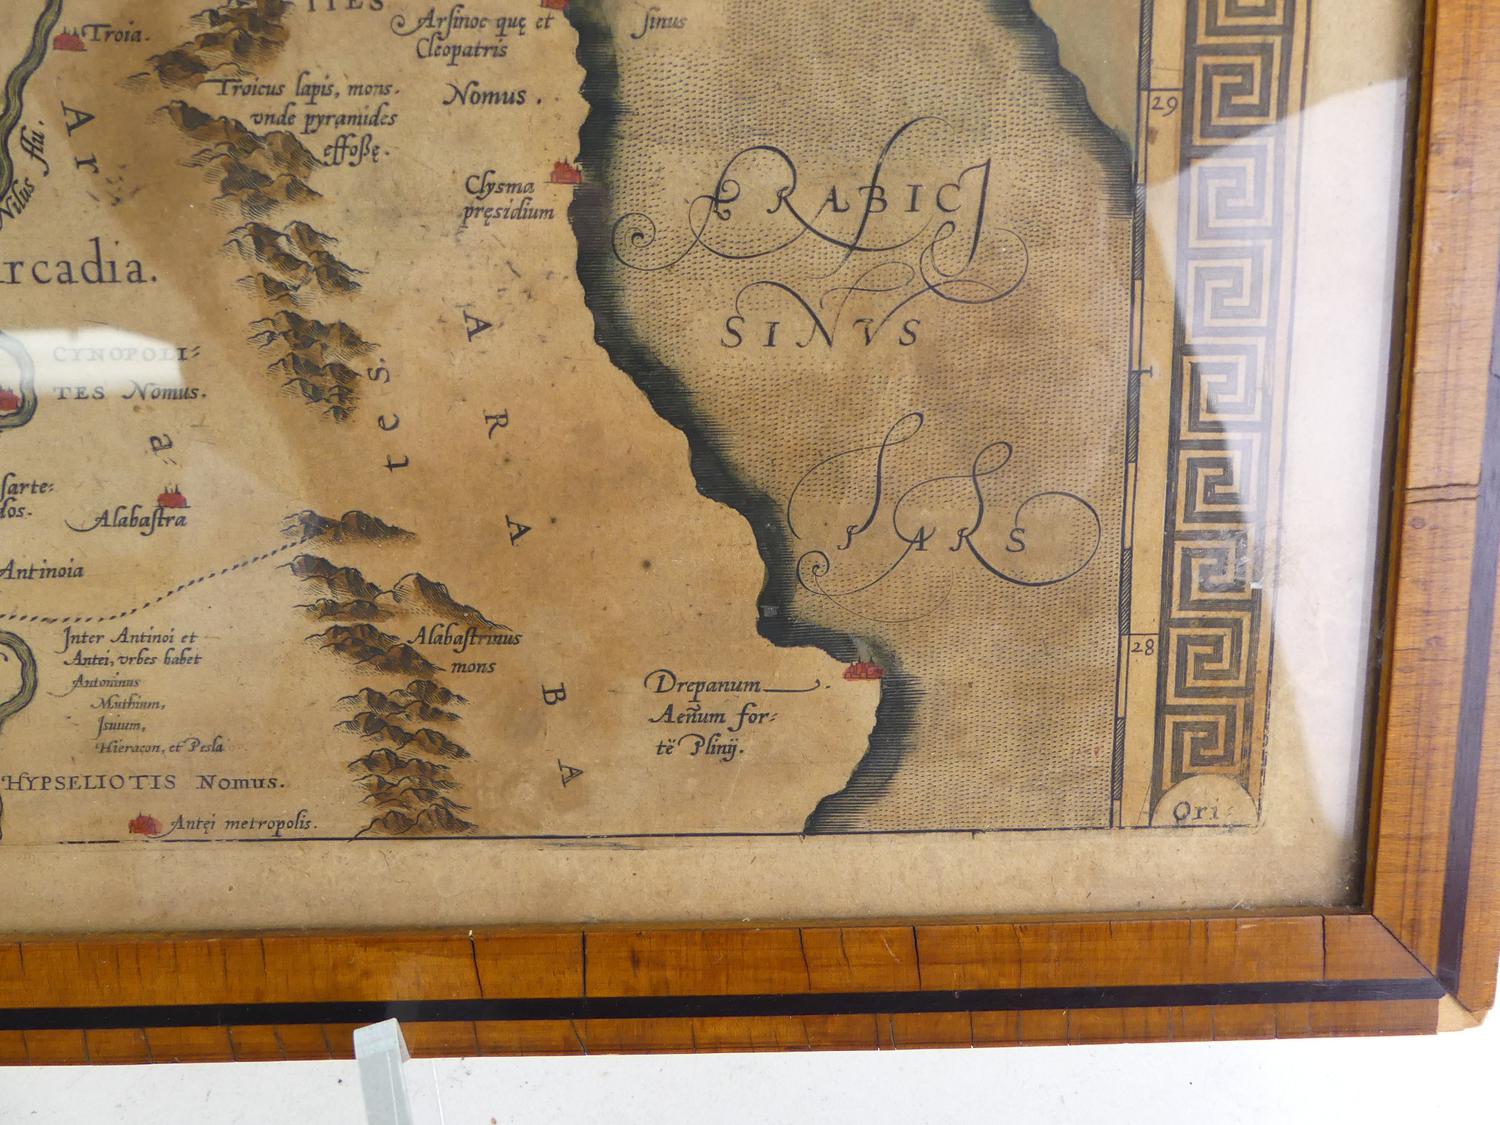 ITES
Troia.
Arsinoe quę et
Cleopatris
sinus
Troicus lapis, mons.
vnde pyramides
effoßę.
Nomus.
29
Ar
Nilus flu.
Clysma
pręsidium
ARABICI
SINVS
PARS
rcadia.
CYNOPOLI-
TES Nomus.
a-
tes.
ARABA
sarte:
dos.
Alabastra
Antinoia
Inter Antinoi et
Antei, vrbes habet
Antoninus
Muthium,
Isiuium,
Hieracon, et Pesla
Alabastrinus
mons
Drepanum
Aenum for-
të Plinij.
28
HYPSELIOTIS Nomus.
Antęi metropolis.
Ori-